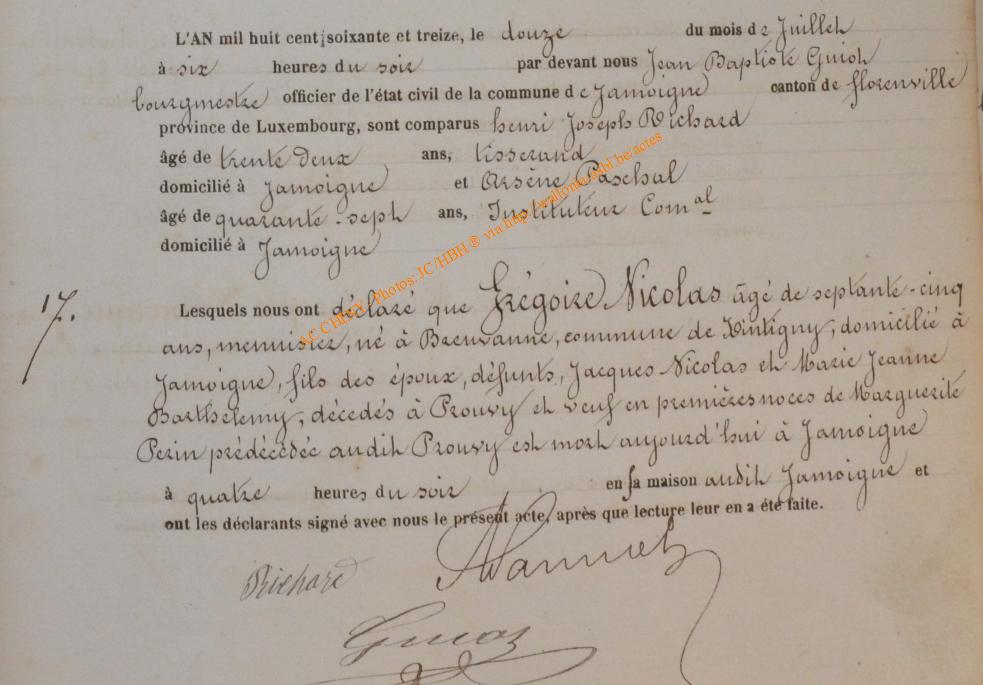 L'AN mil huit cent soixante et treize, le douze du mois de Juillet
à six heures du soir par devant nous Jean Baptiste Guiot
bourgmestre officier de l'état civil de la commune de Jamoigne canton de florenville
province de Luxembourg, sont comparus henri Joseph Richard
âgé de trente deux ans, tisserand
domicilié à Jamoigne et Arsène Paschal
âgé de quarante-sept ans, Instituteur Comal
domicilié à Jamoigne
17.
Lesquels nous ont déclaré que Grégoire Nicolas âgé de septante-cinq
ans, menuisier, né à Breuvanne, commune de Tintigny, domicilié à
Jamoigne, fils des époux, défunts, Jacques Nicolas et Marie Jeanne
Barthelemy, décedés à Prouvy et veuf en premières noces de Marguerite
Perin prédécédée audit Prouvy est mort aujourd'hui à Jamoigne
à quatre heures du soir en sa maison audit Jamoigne et
ont les déclarants signé avec nous le présent acte, après que lecture leur en a été faite.
Richard
Guiot
AC CHINY - Photos: JC/HBH ® via http://wallonia.mbl.be/actes